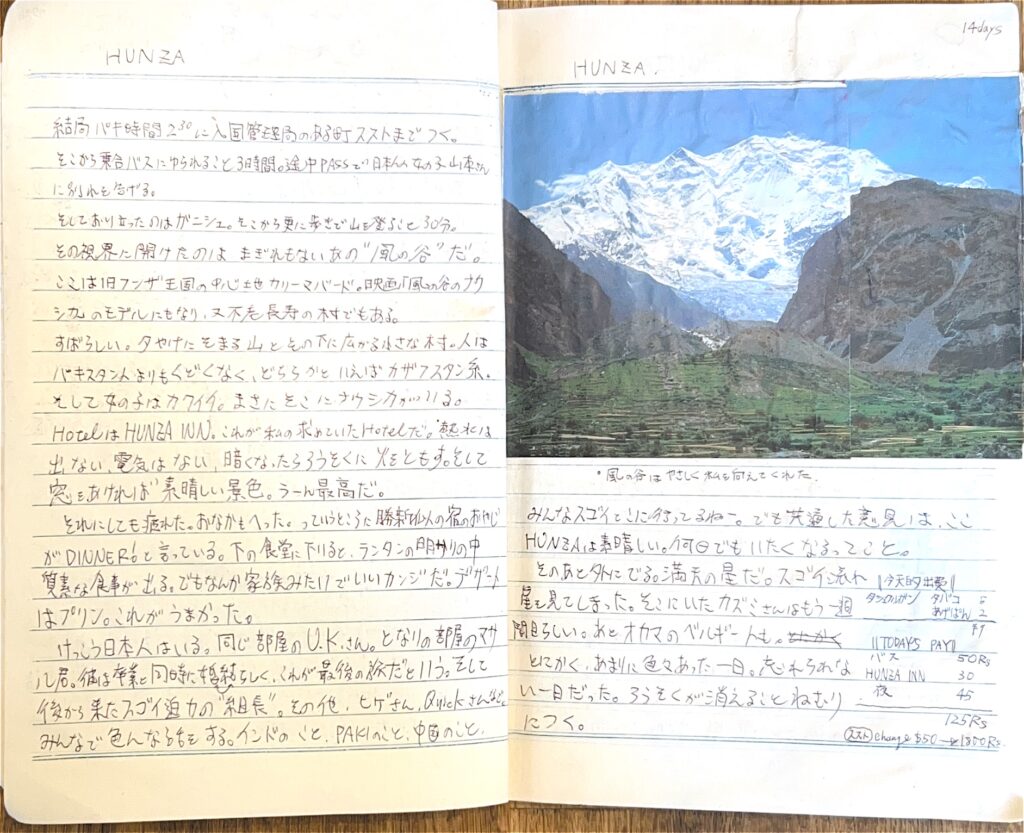 HUNZA
結局パキ時間2³⁰に入国管理局のある町スストまでつく。
そこから乗合バスにゆられること3時間。途中PASSで日本人の女の子山本さん
に別れを告げる。
そしており立ったのはガニシュ。そこから更に歩きで山を登ること30分。
その視界に開けたのは まぎれもないあの"風の谷"だ。
ここは旧フンザ王国の中心地カリーマバード。映画「風の谷のナウ
シカ」のモデルにもなり、又不老長寿の村でもある。
すばらしい。夕やけにそまる山とその下に広がる小さな村。人は
パキスタン人よりもくどくなく、どちらかといえばカザフスタン系。
そして女の子はカワイイ。まさにそこにナウシカがいる。
HotelはHUNZA INN。これが私の求めていたHotelだ。熱水は
出ない、電気はない、暗くなったらろうそくに火をともす。そして
窓をあければ素晴しい景色。うーん最高だ。
それにしても疲れた。おなかもへった。っていうところに勝新似の宿のおやじ
がDINNER!と言っている。下の食堂に下りると、ランタンの明かりの中
質素な食事が出る。でもなんか家族みたいでいいカンジだ。デザート
はプリン。これがうまかった。
けっこう日本人はいる。同じ部屋のU.K.さん。となりの部屋のマサ
ル君。彼は卒業と同時に結婚らしく、これが最後の旅だという。そして
後から来たスゴイ迫力の"組長"。その他、ヒゲさん、Quickさんなど。
みんなで色んな話をする。インドのこと、PAKIのこと、中国のこと、
14days
HUNZA.
・風の谷はやさしく私を向えてくれた.
みんなスゴイとこに行ってるねー。でも共通した意見は、ここ
HUNZAは素晴しい。何日でもいたくなるってこと。
そのあと外にでる。満天の星だ。スゴイ流れ
星を見てしまった。そこにいたカズミさんはもう一週
間目らしい。あとオカマのベルギートも。とにかく
とにかく、あまりに色々あった一日。忘れられな
い一日だった。ろうそくが消えることねむり
につく。
||今天的出費||
タシュクルガン タバコ 5
あげぱん 2
¥7
||TODAYS PAY||
バス 50Rs
HUNZA INN 30
夜 45
125Rs
ススト change $50→1800Rs.